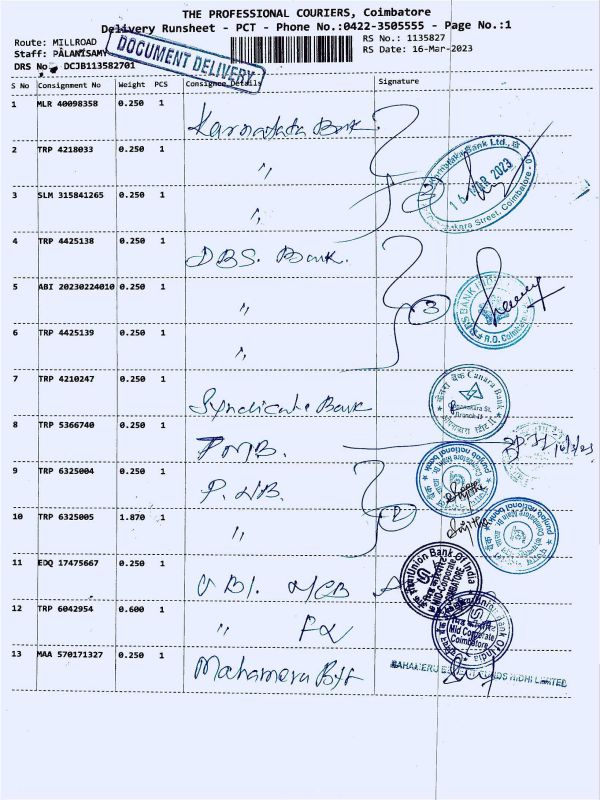 THE PROFESSIONAL COURIERS, Coimbatore
Delivery Runsheet - PCT - Phone No.:0422-3505555 - Page No.:1
Route: MILLROAD
RS No.: 1135827
Staff: PALANISAMY
RS Date: 16-Mar-2023
DRS No DCJB113582701
DOCUMENT DELIVERY
S No Consignment No Weight PCS Consignee Details Signature
1 MLR 40098358 0.250 1 Karnataka Bank
2 TRP 4218033 0.250 1 "
3 SLM 315841265 0.250 1 "
Karnataka Bank Ltd.,
16 MAR 2023
Street, Coimbatore
4 TRP 4425138 0.250 1 DBS. Bank.
5 ABI 20230224010 0.250 1 "
3
6 TRP 4425139 0.250 1 "
7 TRP 4210247 0.250 1 Syndicate Bank
केनरा बैंक Canara Bank
8 TRP 5366740 0.250 1 PNB.
16/3/23
9 TRP 6325004 0.250 1 P.NB.
punjab national bank
2
10 TRP 6325005 1.870 1 "
punjab national bank
11 EDQ 17475667 0.250 1 UBI. MCB
Union Bank Of India
Mid-Corporate
COIMBATORE
12 TRP 6042954 0.600 1 "
Union Bank Of India
Mid Corporate
Coimbatore
13 MAA 570171327 0.250 1 Mahameru
NIDHI LIMITED